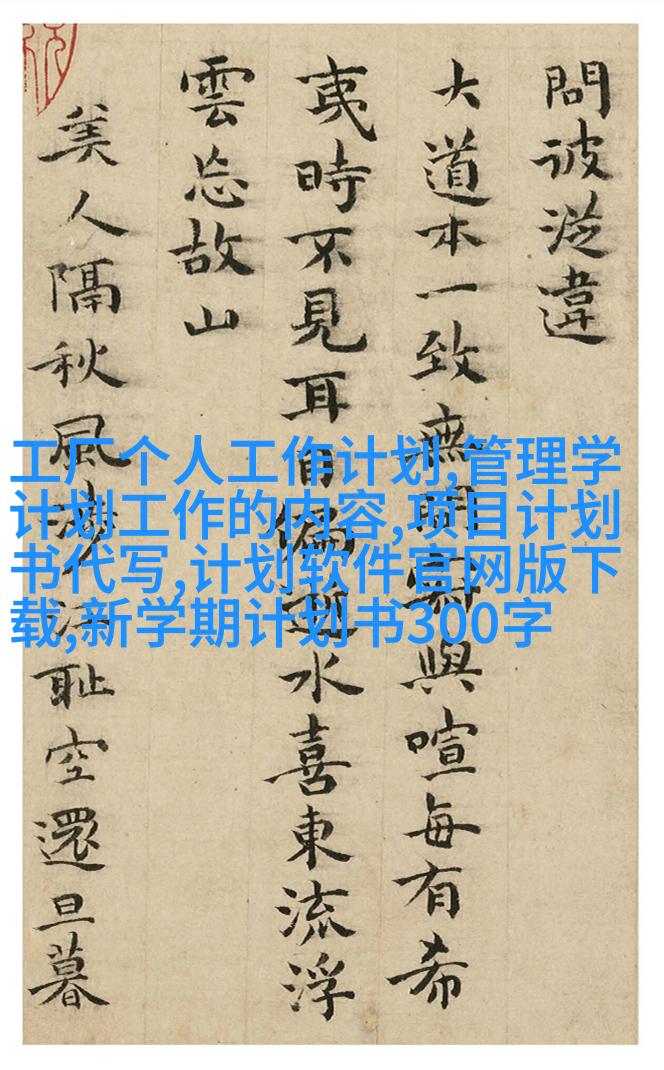 問彼從違
大道本一致無寂與喧每有希
夷時不見耳目偏逝水喜東流浮
雲忘故山
美人隔秋風耻空還旦暮
工厂个人工作计划,管理学
计划工作的内容,项目计划
书代写,计划软件官网版下
载,新学期计划书300字